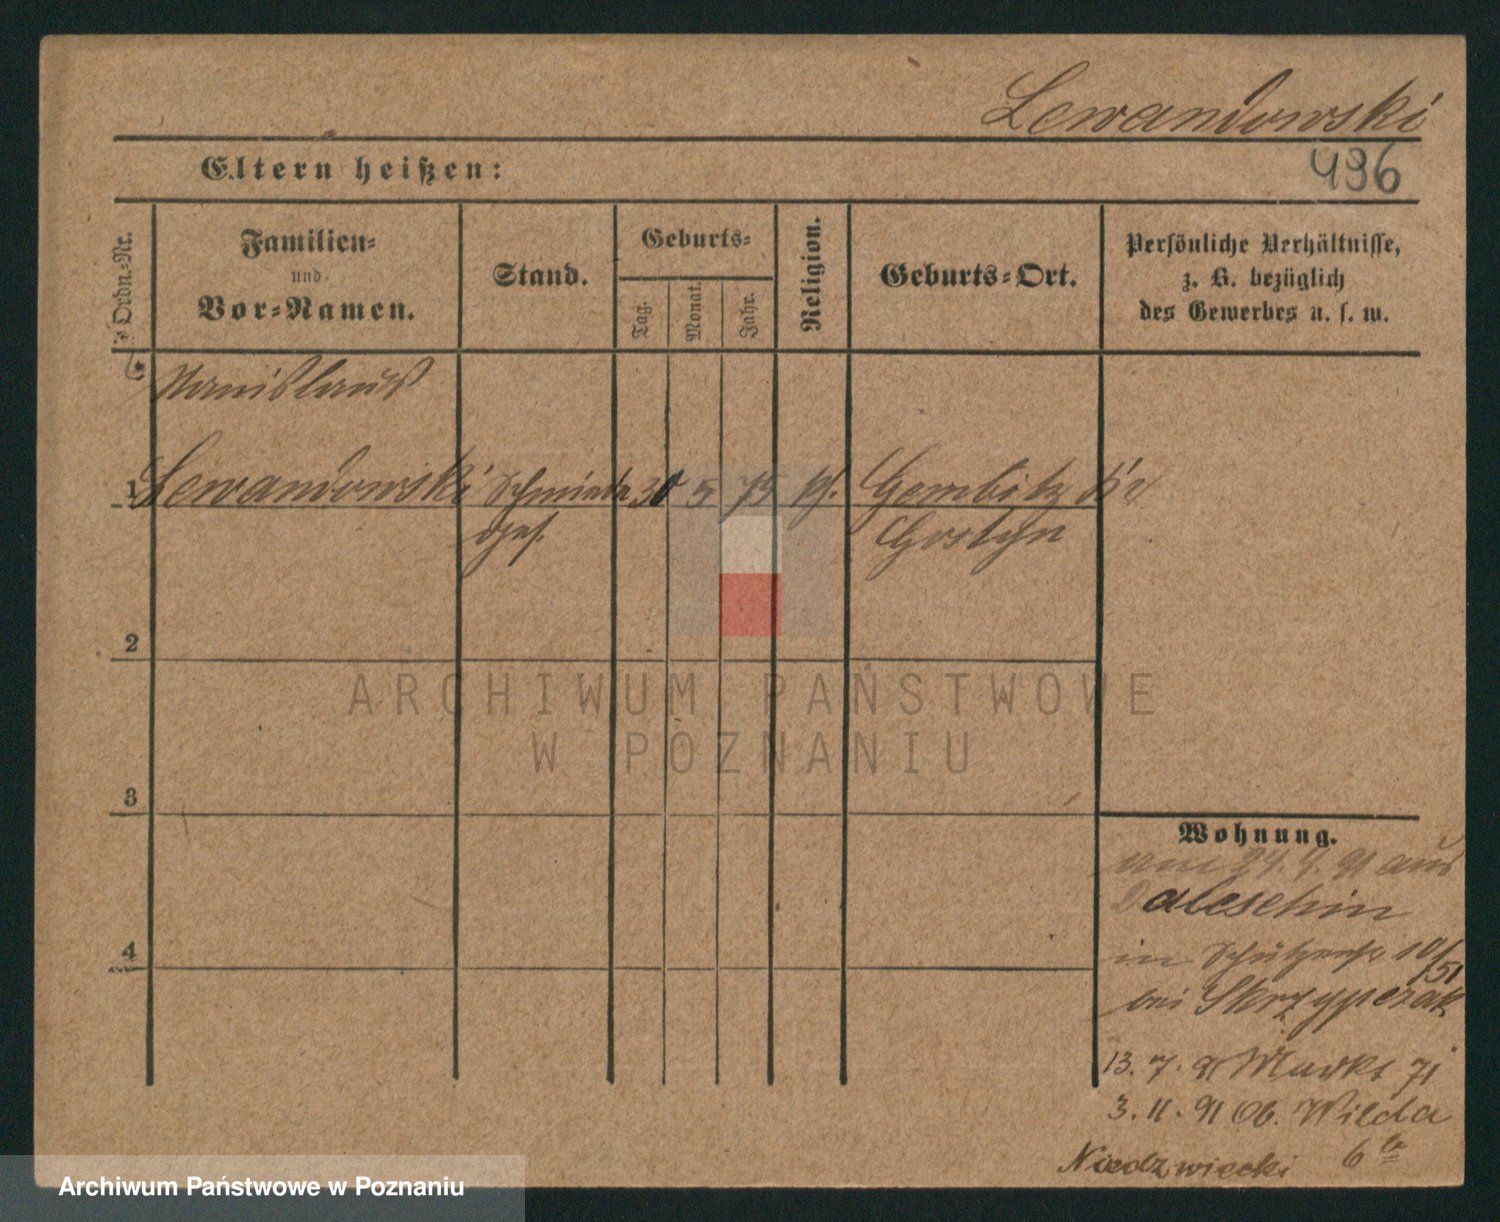 Lewandowski
Eltern heißen:
496
Ordn.-Nr.
Familien-
und
Vor-Namen.
Stand.
Geburts-
Tag.
Monat.
Jahr.
Religion.
Geburts-Ort.
Persönliche Verhältnisse,
z. B. bezüglich
des Gewerbes u. s. w.
Stanislaus
1 Lewandowski Schmiede 30 5 75 kf. Gembitz Kr
Ges. Gostyn
2
3
4
Wohnung.
am 24. 4. 91 aus
Daleschin
in Schützenstr 10/
51
bei Skrzypczak
13. 7. 91 Markt 71
3. 11. 91 Ob. Wilda
6
Niedzwiecki
ARCHIWUM PAŃSTWOWE
W POZNANIU
Archiwum Państwowe w Poznaniu